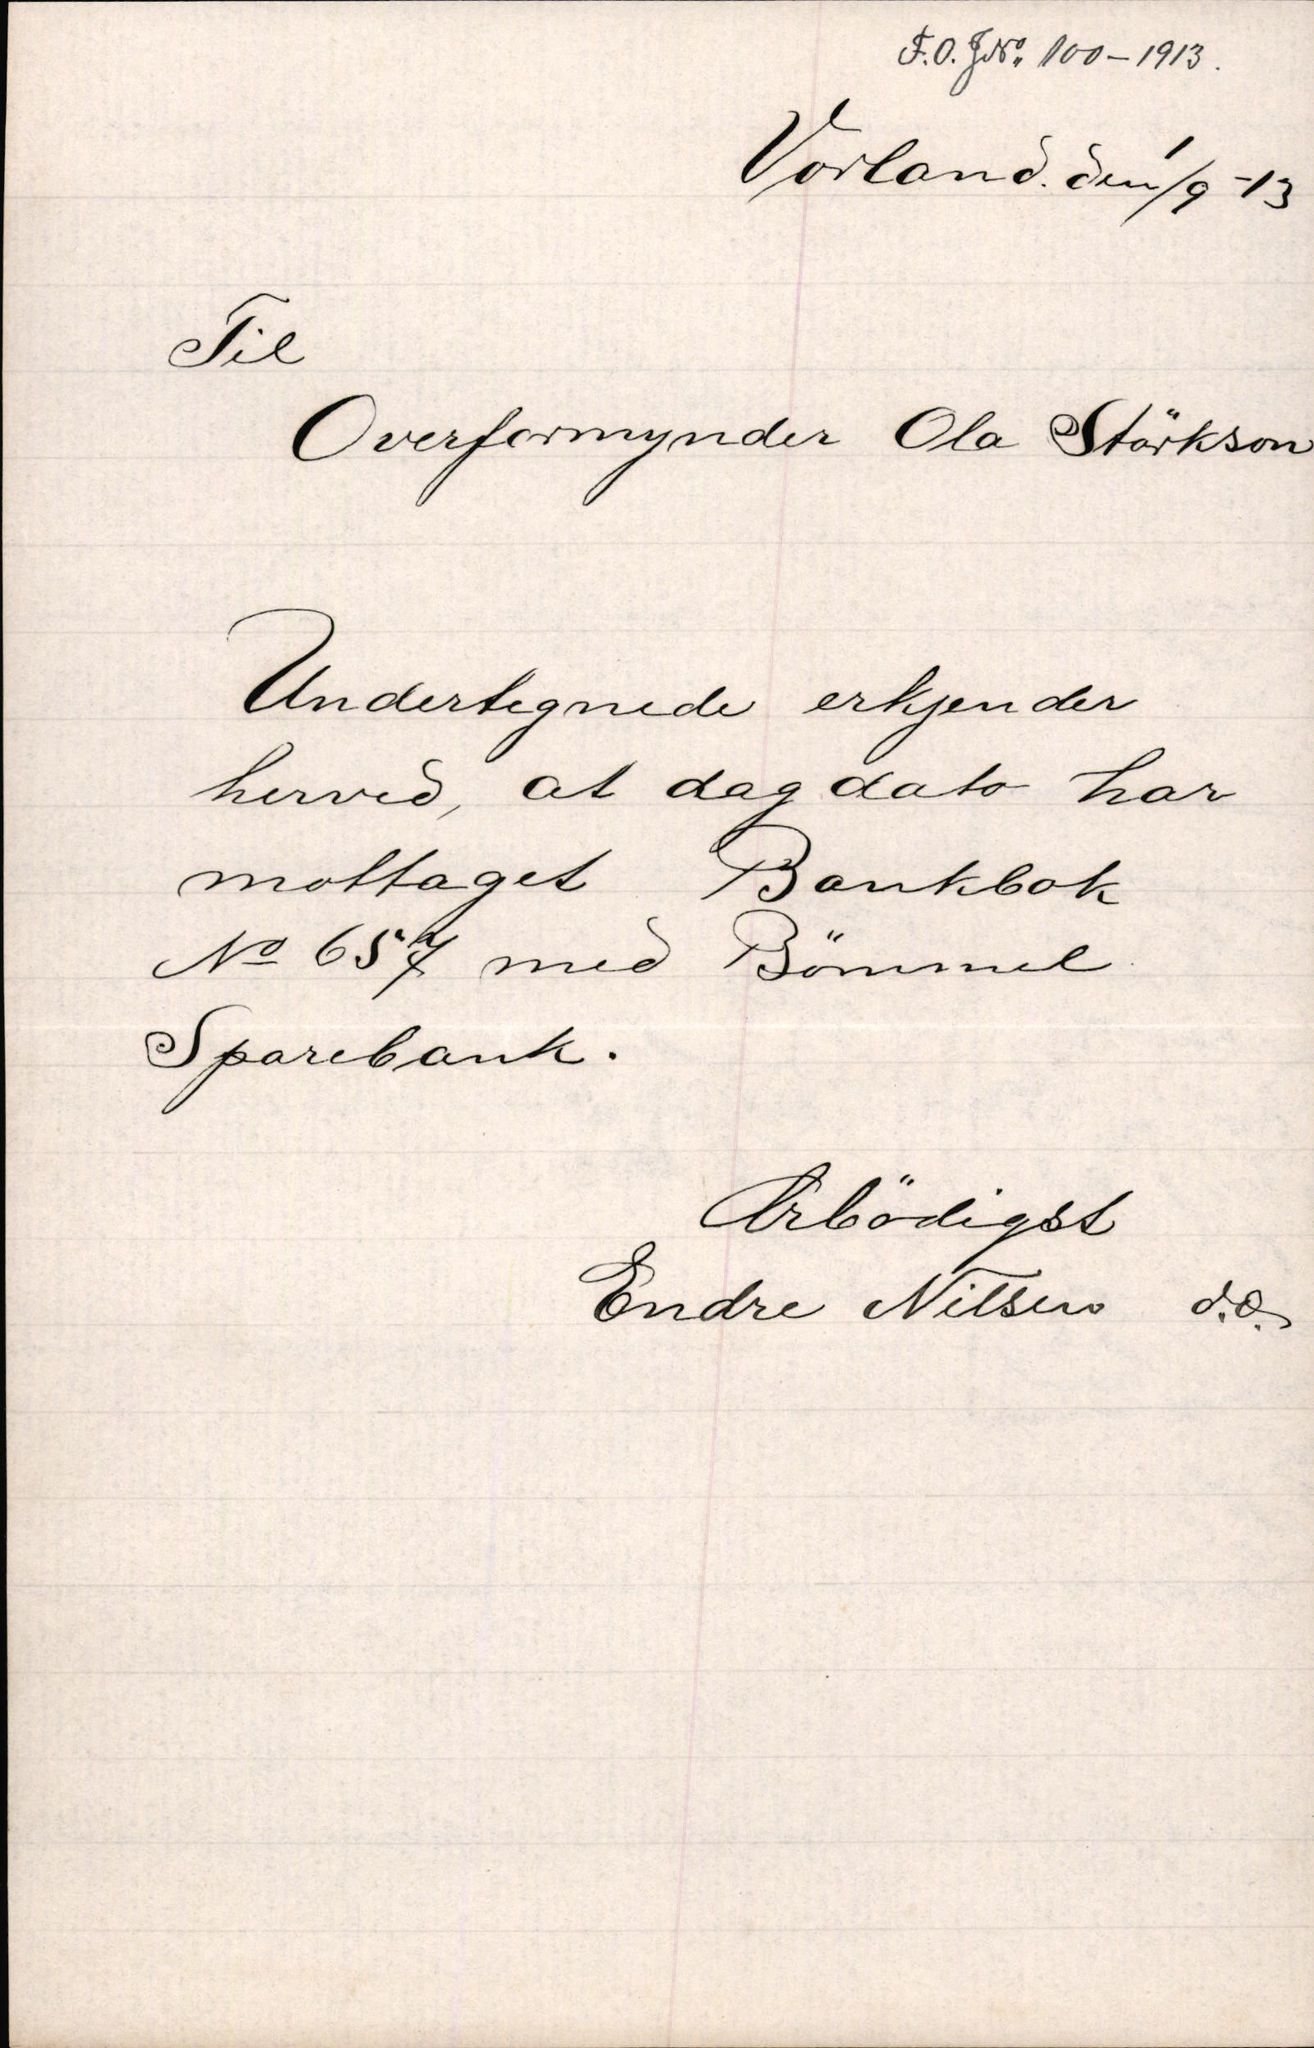 F.O. J.No. 100-1913.
Vorland. den 1/9 -13
Til
Overformynder Ola Störkson
Undertegnede erkjender
herved, at dag dato har
mottaget Bankbok
No 657 med Bömmel
Sparebank.
Ærbödigst
Endre Nilsen d.e.